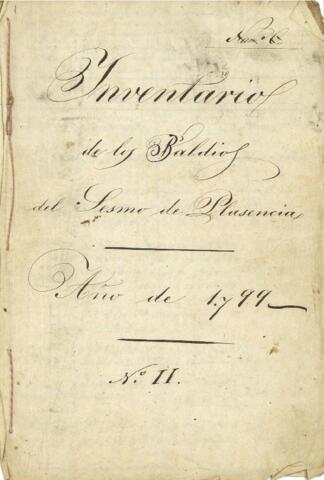 Num.º 6.
Inventario
de los Baldios
del Sesmo de Plasencia,
Año de 1799
N.º II.